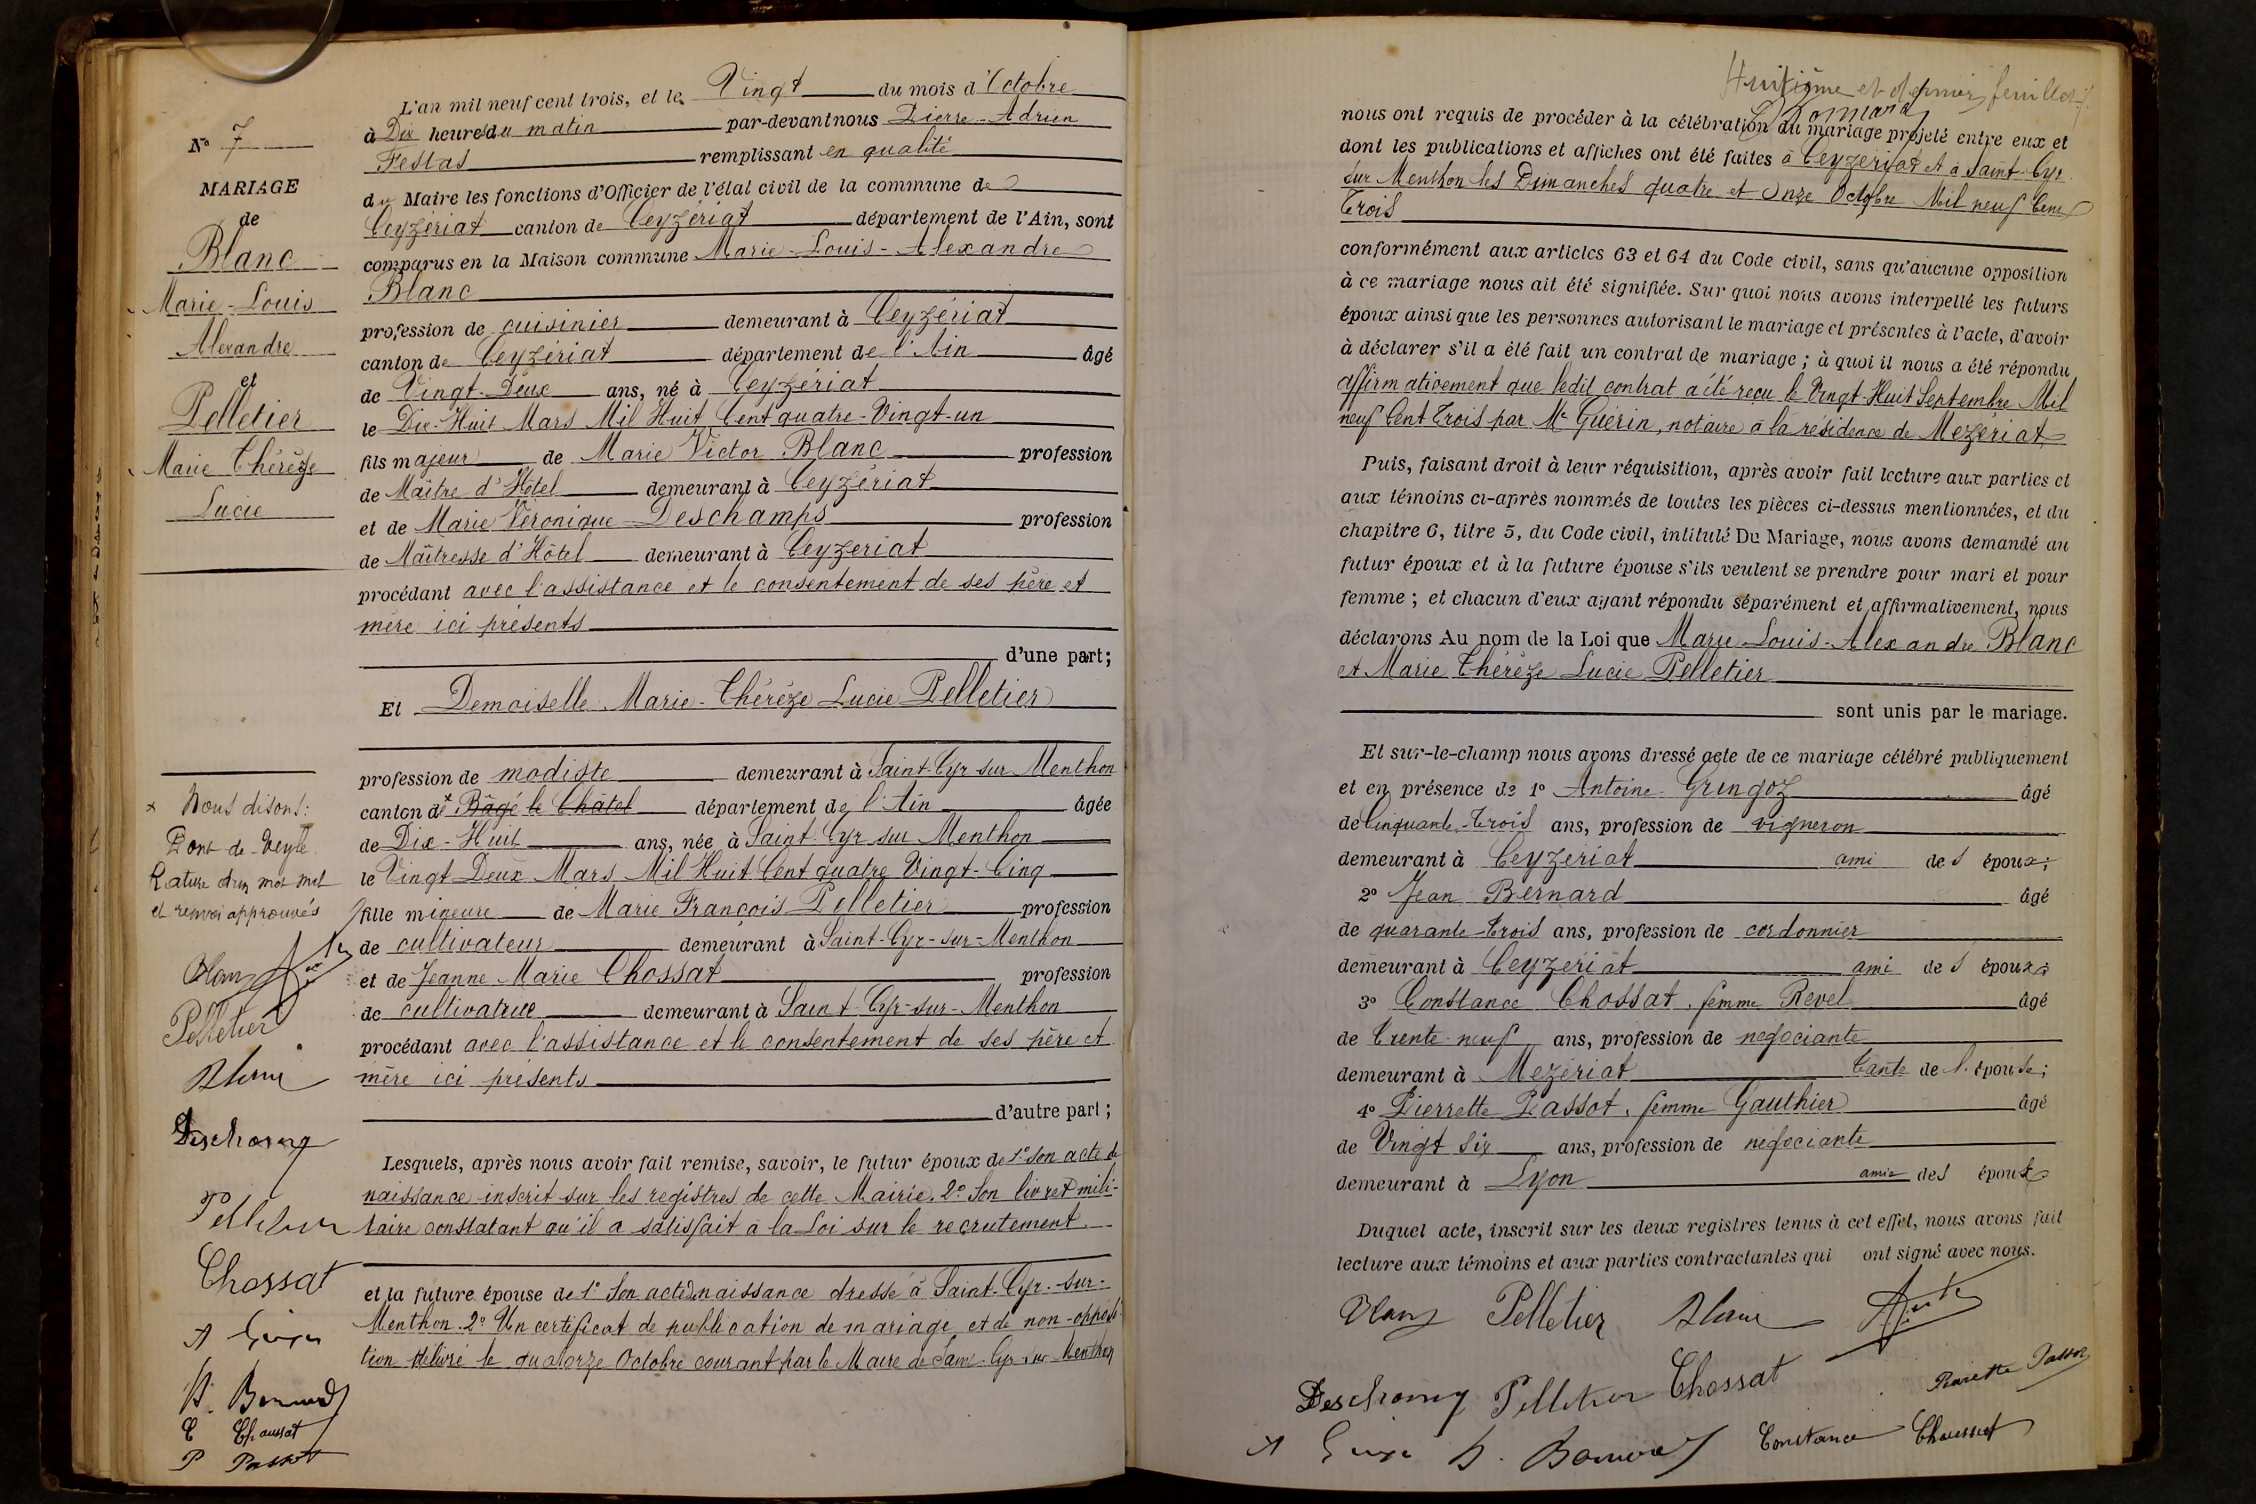 N° 7
MARIAGE
de
Blanc
Marie-Louis
Alexandre
et
Pelletier
Marie Thérèze
Lucie
L'an mil neuf cent trois, et le Vingt du mois d'Octobre
à Dix heures du matin par-devant nous Pierre-Adrien
Festas remplissant en qualité
du Maire les fonctions d'Officier de l'état civil de la commune de
Ceyzériat canton de Ceyzériat département de l'Ain, sont
comparus en la Maison commune Marie-Louis-Alexandre
Blanc
profession de cuisinier demeurant à Ceyzériat
canton de Ceyzériat département de l'Ain âgé
de Vingt-Deux ans, né à Ceyzériat
le Dix-Huit Mars Mil Huit Cent quatre-Vingt-un
fils majeur de Marie Victor Blanc profession
de Maître d'Hôtel demeurant à Ceyzériat
et de Marie Véronique Deschamps profession
de Maîtresse d'Hôtel demeurant à Ceyzériat
procédant avec l'assistance et le consentement de ses père et
mère ici présents
d'une part;
Et Demoiselle Marie-Thérèze Lucie Pelletier
profession de modiste demeurant à Saint-Cyr sur Menthon
canton de x Bâgé le Châtel département de l'Ain âgée
de Dix-Huit ans, née à Saint-Cyr sur Menthon
le Vingt Deux Mars Mil Huit Cent quatre Vingt-Cinq
fille mineure de Marie François Pelletier profession
de cultivateur demeurant à Saint-Cyr-sur-Menthon
et de Jeanne Marie Chossat profession
de cultivatrice demeurant à Saint-Cyr-sur-Menthon
procédant avec l'assistance et le consentement de ses père et
mère ici présents
d'autre part;
Lesquels, après nous avoir fait remise, savoir, le futur époux de 1° Son acte de
naissance inscrit sur les registres de cette Mairie. 2° Son livret mili-
taire constatant qu'il a satisfait à la Loi sur le recrutement.
et la future épouse de 1° Son acte de naissance dressé à Saint-Cyr-sur-
Menthon. 2° Un certificat de publication de mariage et de non-opposi-
tion délivré le quatorze Octobre courant par le Maire de Saint-Cyr-sur-Menthon
x Nous disons:
Pont de Veyle
Rature d'un mot nul
et renvoi approuvés
Blanc
Pelletier
Blanc
Deschamp
Pelletier
Chossat
A
B. Bernard
C Chaussat
P Passot
Huitième et dernier feuillet
nous ont requis de procéder à la célébration du mariage projeté entre eux et
dont les publications et affiches ont été faites à Ceyzériat et à Saint-Cyr
sur Menthon les Dimanches quatre et Onze Octobre Mil neuf Cent
Trois
conformément aux articles 63 et 64 du Code civil, sans qu'aucune opposition
à ce mariage nous ait été signifiée. Sur quoi nous avons interpellé les futurs
époux ainsi que les personnes autorisant le mariage et présentes à l'acte, d'avoir
à déclarer s'il a été fait un contrat de mariage; à quoi il nous a été répondu
affirmativement que ledit contrat a été reçu le Vingt-Huit Septembre Mil
neuf Cent Trois par Me Guérin, notaire à la résidence de Mézériat
Puis, faisant droit à leur réquisition, après avoir fait lecture aux parties et
aux témoins ci-après nommés de toutes les pièces ci-dessus mentionnées, et du
chapitre 6, titre 5, du Code civil, intitulé Du Mariage, nous avons demandé au
futur époux et à la future épouse s'ils veulent se prendre pour mari et pour
femme; et chacun d'eux ayant répondu séparément et affirmativement, nous
déclarons Au nom de la Loi que Marie Louis-Alexandre Blanc
et Marie Thérèze Lucie Pelletier
sont unis par le mariage.
Et sur-le-champ nous avons dressé acte de ce mariage célébré publiquement
et en présence de 1° Antoine Gringoz âgé
de Cinquante-Trois ans, profession de vigneron
demeurant à Ceyzériat ami des époux;
2° Jean Bernard âgé
de quarante-Trois ans, profession de cordonnier
demeurant à Ceyzériat ami des époux;
3° Constance Chossat, femme Revel âgé
de Trente neuf ans, profession de négociante
demeurant à Mézériat Tante de l'épouse;
4° Pierrette Passot, femme Gauthier âgé
de Vingt six ans, profession de négociante
demeurant à Lyon amie des époux
Duquel acte, inscrit sur les deux registres tenus à cet effet, nous avons fait
lecture aux témoins et aux parties contractantes qui ont signé avec nous.
Blanc Pelletier Blanc
Deschamp Pelletier Chossat Pierrette Passot
A B. Bernard Constance Chaussat